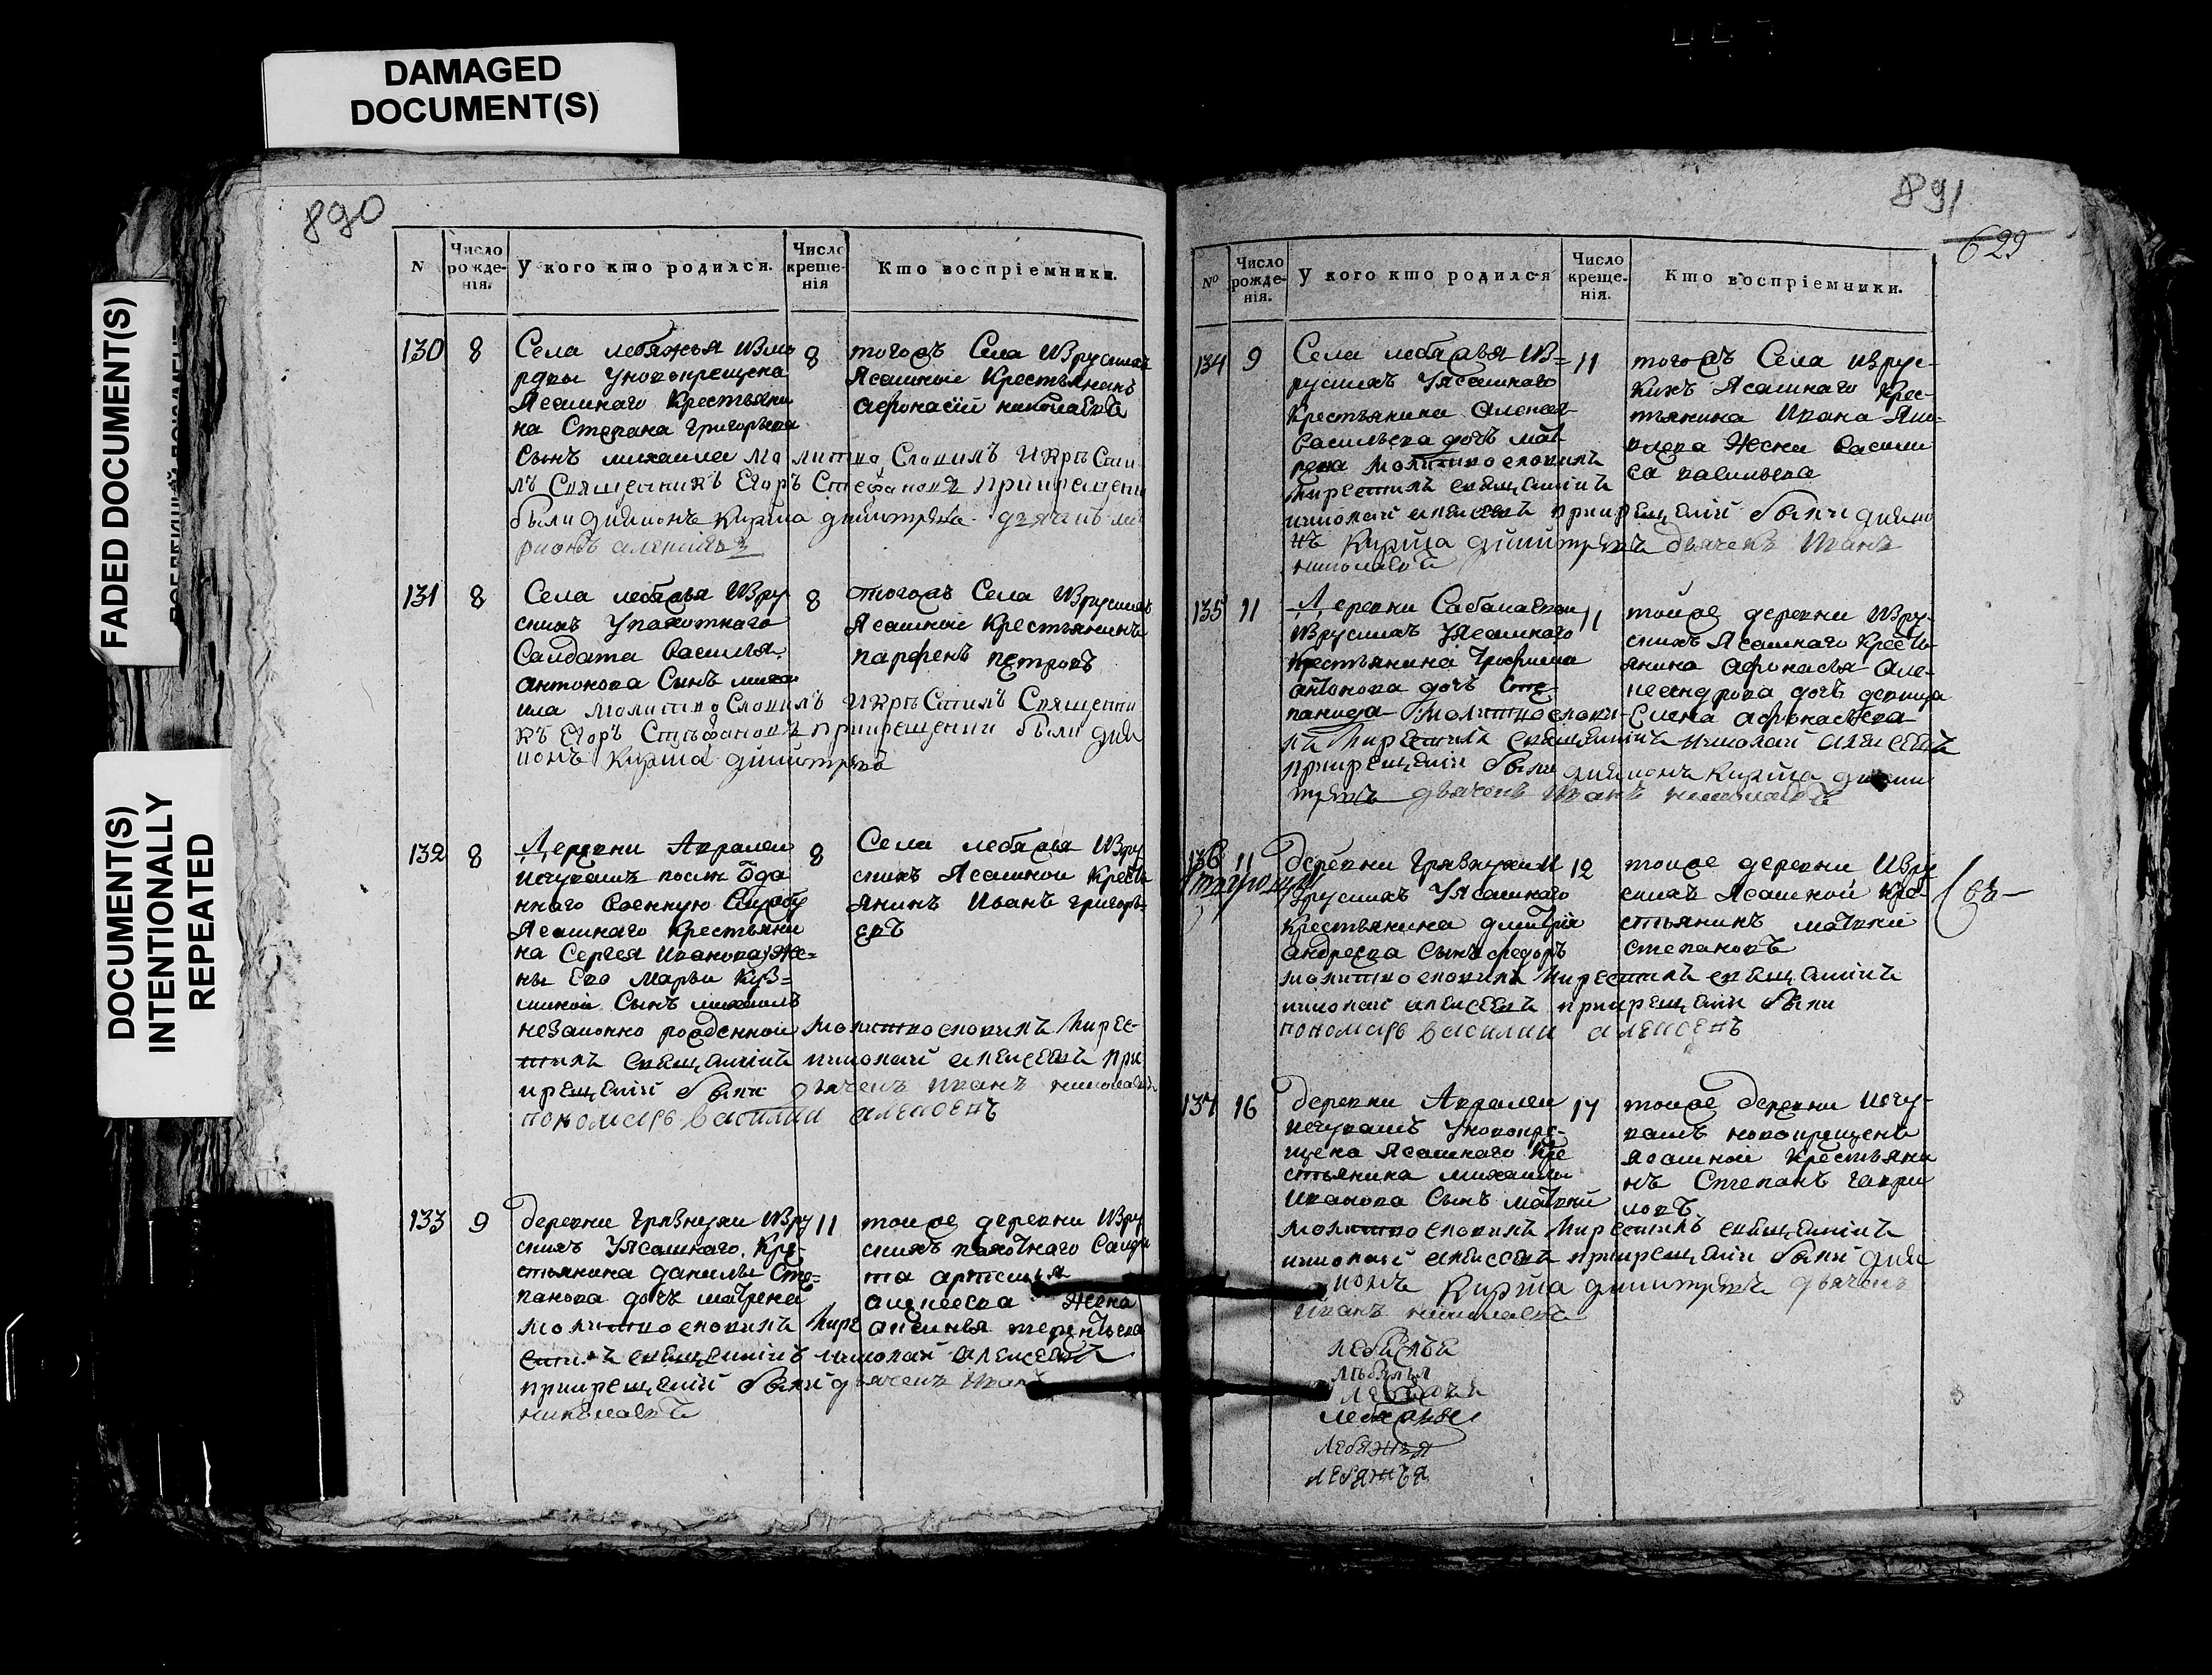 DAMAGED
DOCUMENT(S)
FADED DOCUMENT(S)
DOCUMENT(S)
INTENTIONALLY
REPEATED
890
N
Число рожде-нія.
У кого кто родился.
Число креще-нія
Кто воспріемники.
130 8
Села лебяжья Измо
рдвы уновокрещена
Ясашнаго Крестьяни
на Степана Григорьева
Сынъ михаила молитво Словилъ и кръсти
лъ Священникъ Егоръ Стефановъ прикрещени
были диаконъ Кирила димитревъ дьячекъ ла
рионъ алексиевъ
8
тогожъ Села Изрускихъ
Ясашной Крестьянинъ
афонасий николаевъ
131 8
Села лебяжья Изру
скихъ упахотнаго
Салдата Василья
антонова Сынъ миха
ила молитво Словилъ и кръстилъ Священни
къ Егоръ Стефановъ прикрещении были диа
конъ Кирила димитревъ
8
тогожъ Села Изрускихъ
Ясашной Крестьянинъ
парфенъ петровъ
132 8
Деревни Авралеи
после отда
ннаго Военную Службу
Ясашнаго Крестьяни
на Сергея Иванова же=
ны Его Марьи Куз=
миной Сынъ михаилъ
незаконно рожденной молитво словилъ кирес-
тилъ свещенникъ николай алексеевъ при
крещении были дьячекъ Иванъ николаевъ
пономарь василии алексеевъ
8
Села лебяжья Изру
скихъ Ясашной Кресть
янинъ Иванъ григорь=
евъ
133 9
деревни Грязнухи Изру
скихъ уясашнаго Кре-
стьянина данилы Сте=
панова дочь матрена
молитво словилъ кире
стилъ свещенникъ николай алексеевъ
прикрещении были дьячекъ Иванъ
николаевъ
11
тоиже деревни Изру
скихъ пахотнаго Салда
та
андреева жена
аксинья терентьева
891
629
№
Число рожде-нія.
У кого кто родился
Число креще-нія.
Кто воспріемники.
134 9
Села лебяжья Из=
рускихъ уясашнаго
Крестьянина Алексея
Васильева дочь мат
рена молитво словилъ
кирестилъ свещенникъ
николай алексеевъ прикрещении были диако
нъ Кирила димитревъ дьячекъ Иванъ
николаевъ
11
тогожъ Села изрус-
кихъ Ясашнаго Крес-
тьянина Ивана Яко-
влева жена Васили
са васильева
135 11
Деревни Сабакаевки
Изрускихъ уясашнаго
Крестьянина Трофима
антонова дочь Сте-
панида молитво слови-
лъ кирестилъ свещенникъ николай алексеевъ
прикрещении были диаконъ Кирила дими
тревъ дьячекъ Иванъ николаевъ
11
тоиже деревни Изру-
скихъ Ясашнаго Кресть-
янина афонасья Але-
ксандрова дочь девица
Елена афонасьева
136 11
деревни Грязнухи И
зрускихъ уясашнаго
Крестьянина димитрия
андреева Сынъ федоръ
молитво словилъ кирестилъ свещенникъ
николай алексеевъ прикрещении были
пономарь василии алексеевъ
12
тоиже деревни Изру
скихъ Ясашной Кре-
стьянинъ матвеи
степановъ
137 16
деревни Авралеи
уновокре-
щена Ясашнаго Кре
стьянина михаила
Иванова Сынъ матвей
молитво словилъ кирестилъ свещенникъ
николай алексеевъ прикрещении были диа
конъ Кирила димитревъ дьячекъ
Иванъ николаевъ
17
тоиже деревни
новокрещенъ
ясашной Крестьяни
нъ Степанъ Гаври
ловъ
лебяжья
Лебяжья
ЛЕБЯЖЪЯ